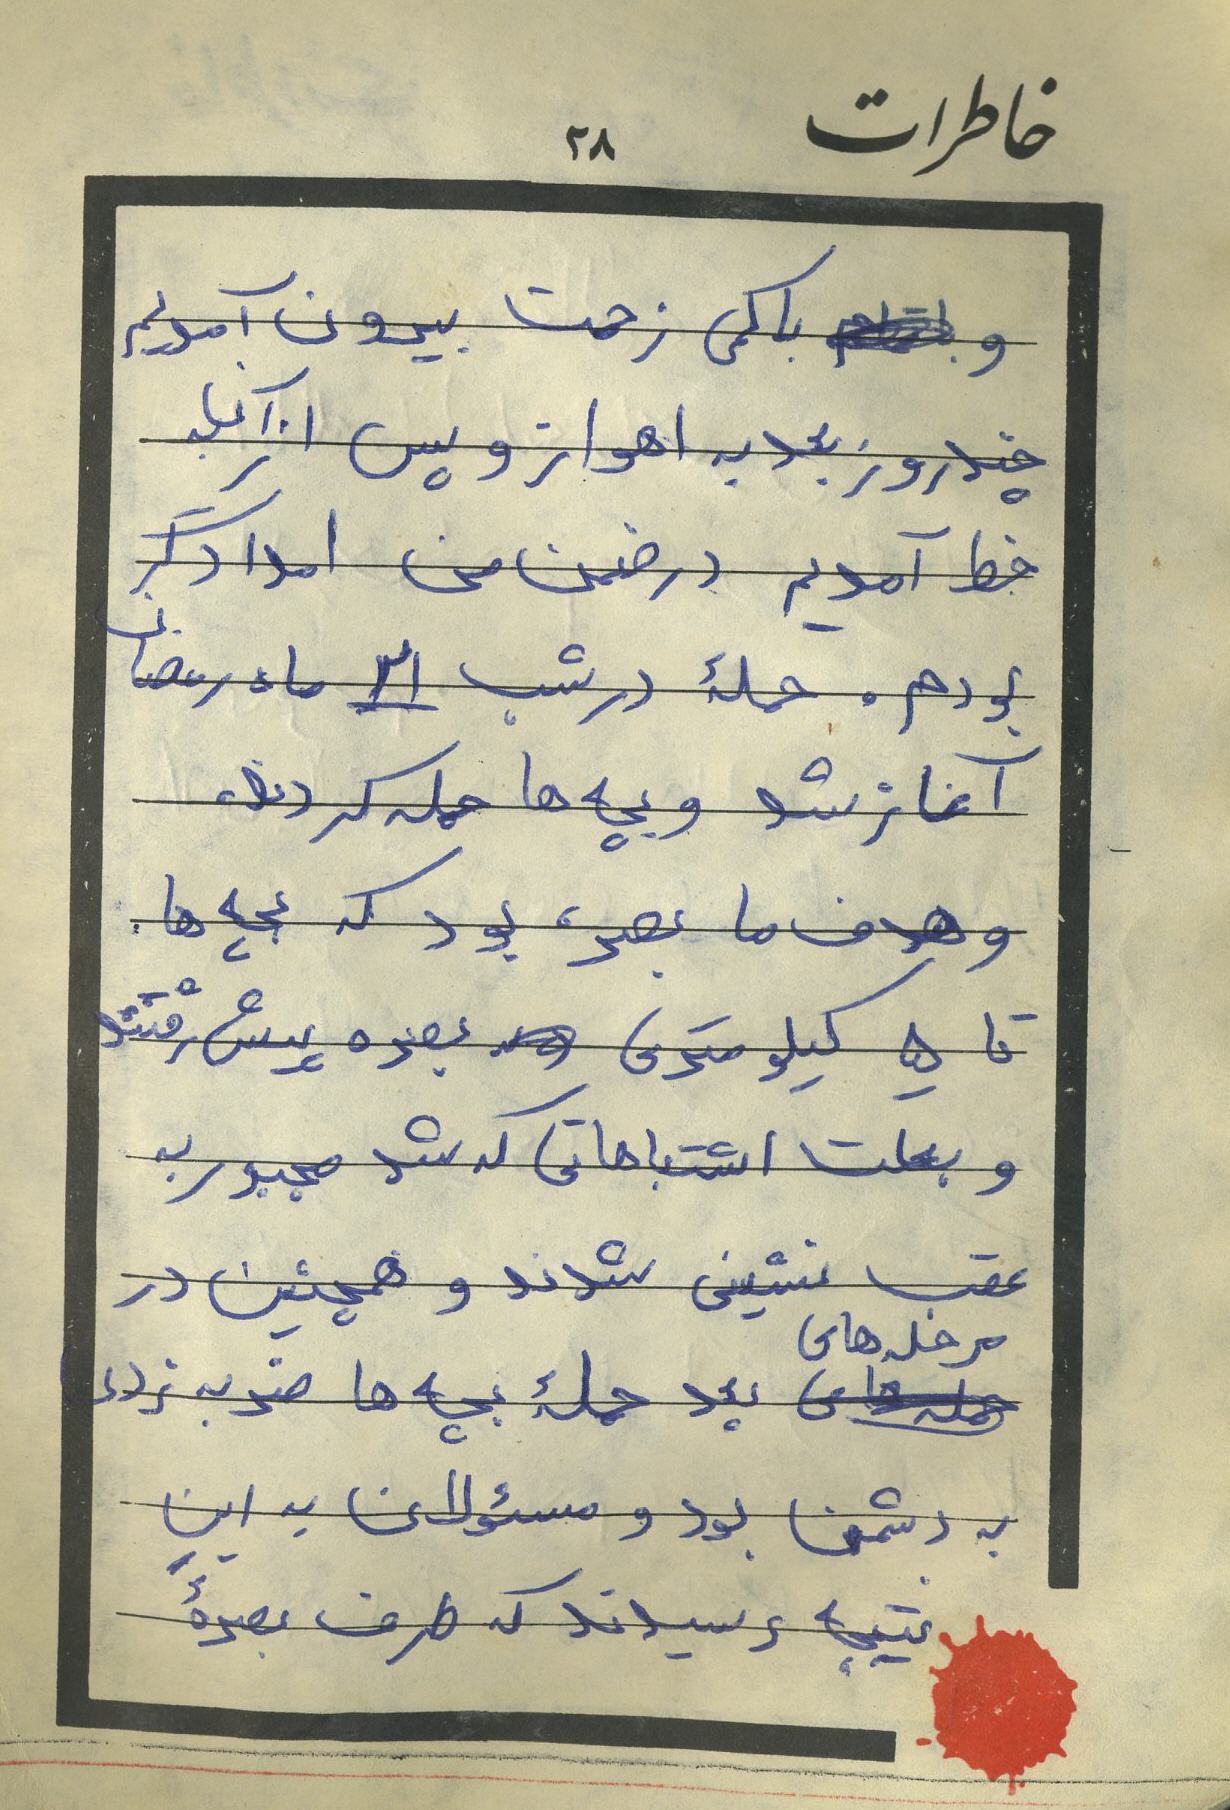 خاطرات
۲۸
و با کمی زحمت بیرون آمدیم
چند روز بعد به اهواز و پس از آن به
خط آمدیم در ضمن من امدادگر
بودم. حملهٔ در شب ۲۱ ماه رمضان
آغاز شد و بچه ها حمله کردند،
و هدف ما بصره بود که بچه ها
تا ۵ کیلومتری بصره پیش رفتند
و بعلت اشتباهاتی که شد مجبور به
عقب نشینی شدند و همچنین در
مرحله های
بعد حملهٔ بچه ها ضربه زدن
به دشمن بود و مسئولان به این
نتیجه رسیدند که طرف بصرهٔ